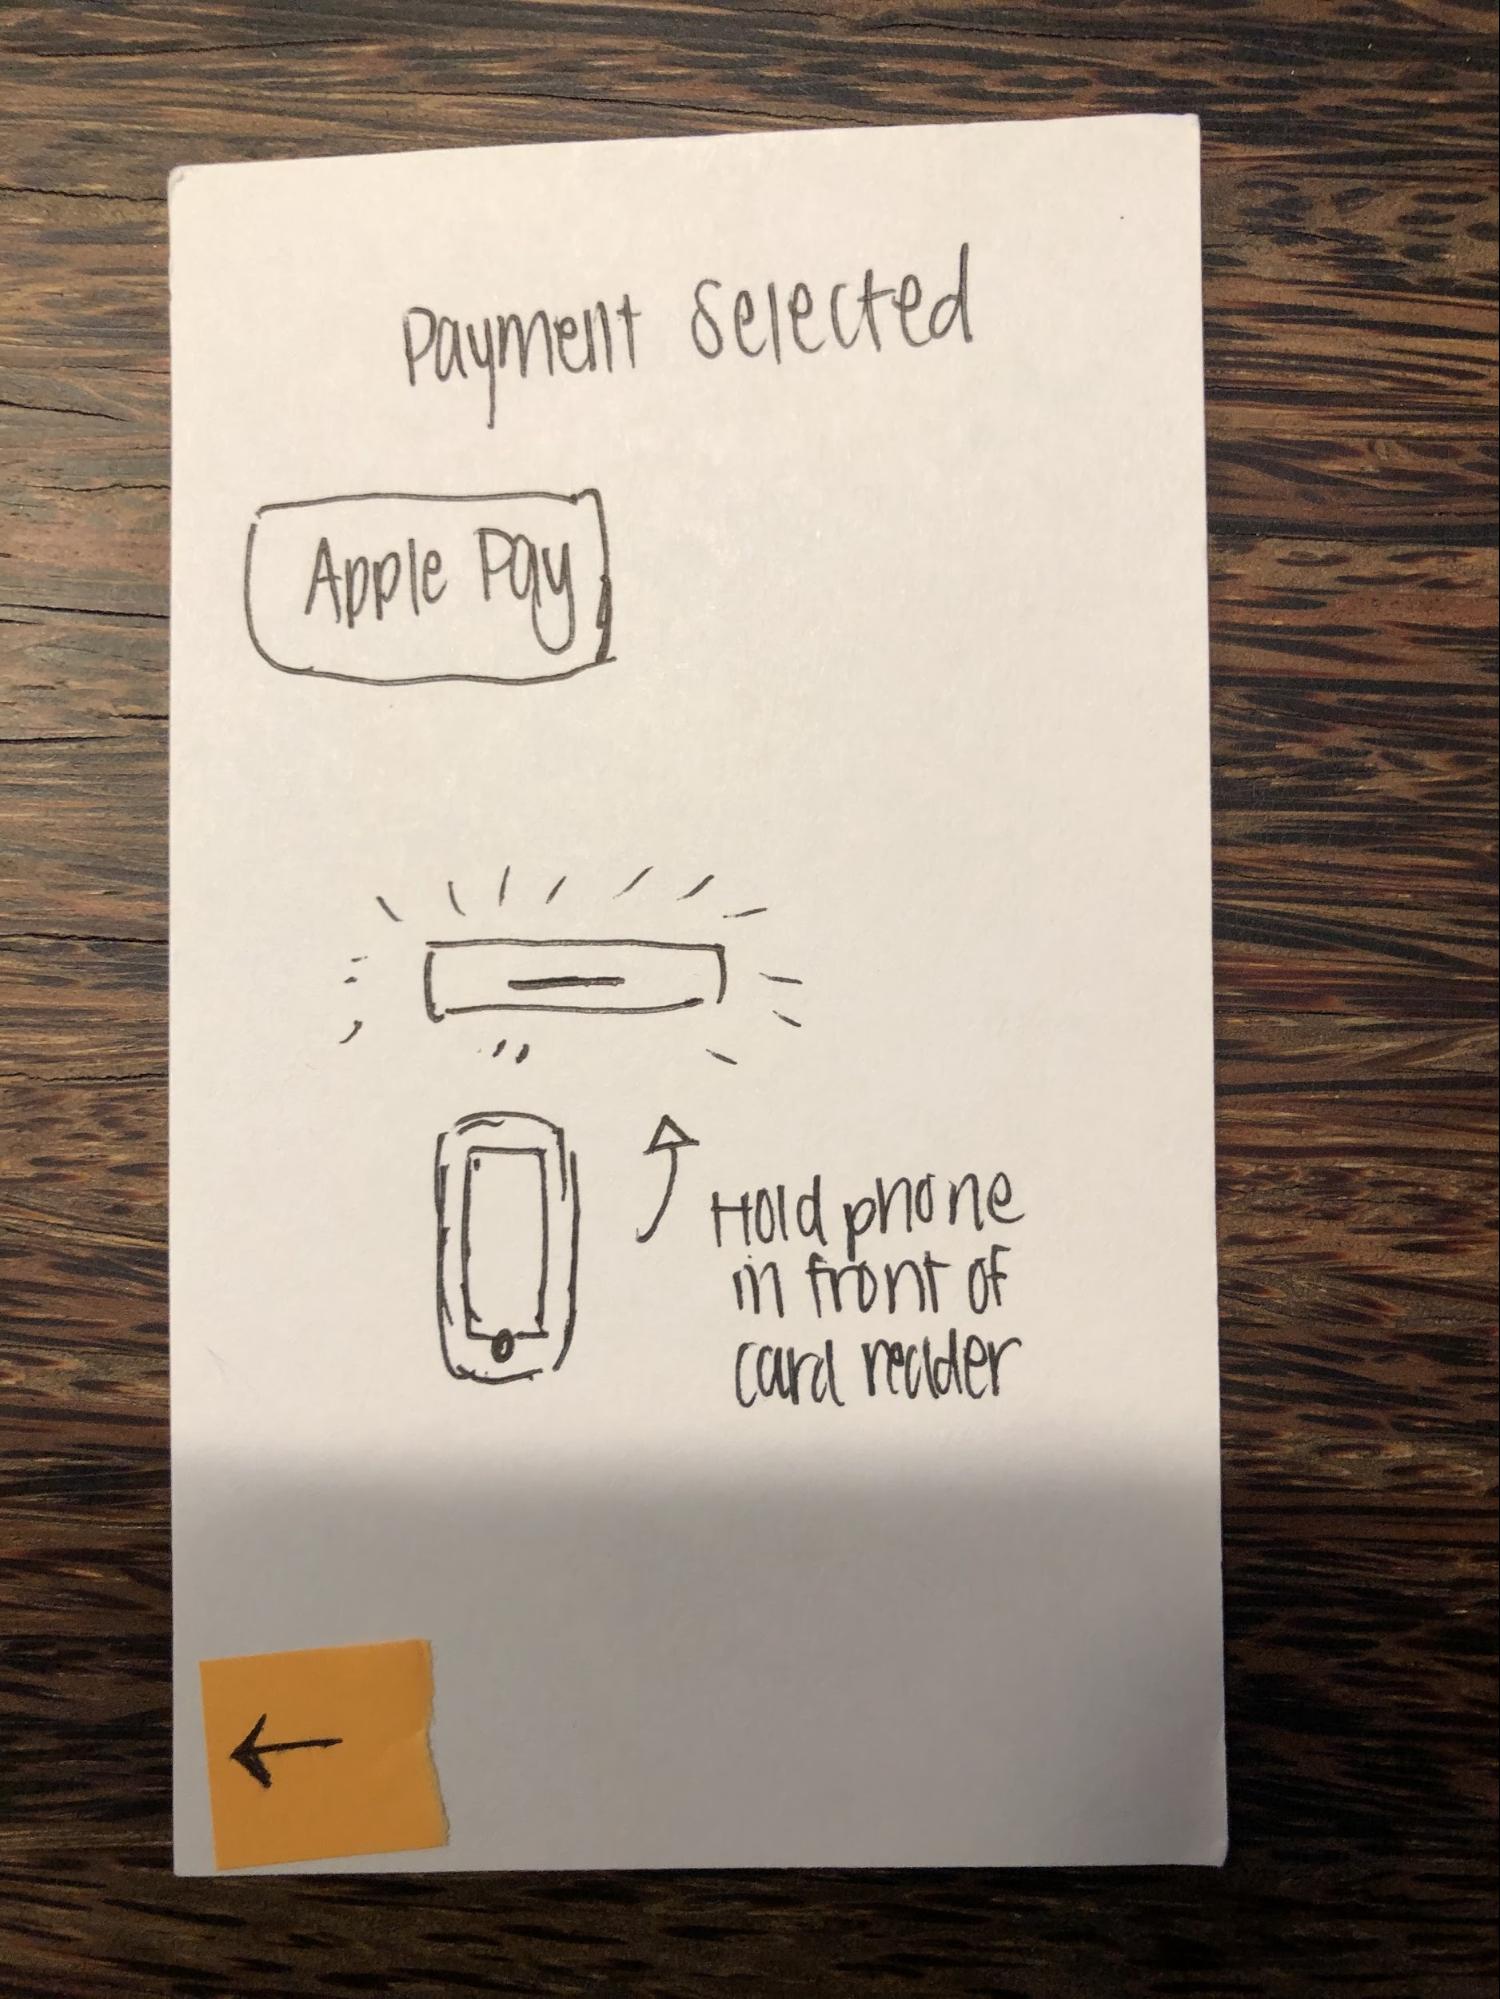 Payment Selected
Apple Pay
Hold phone
in front of
card reader